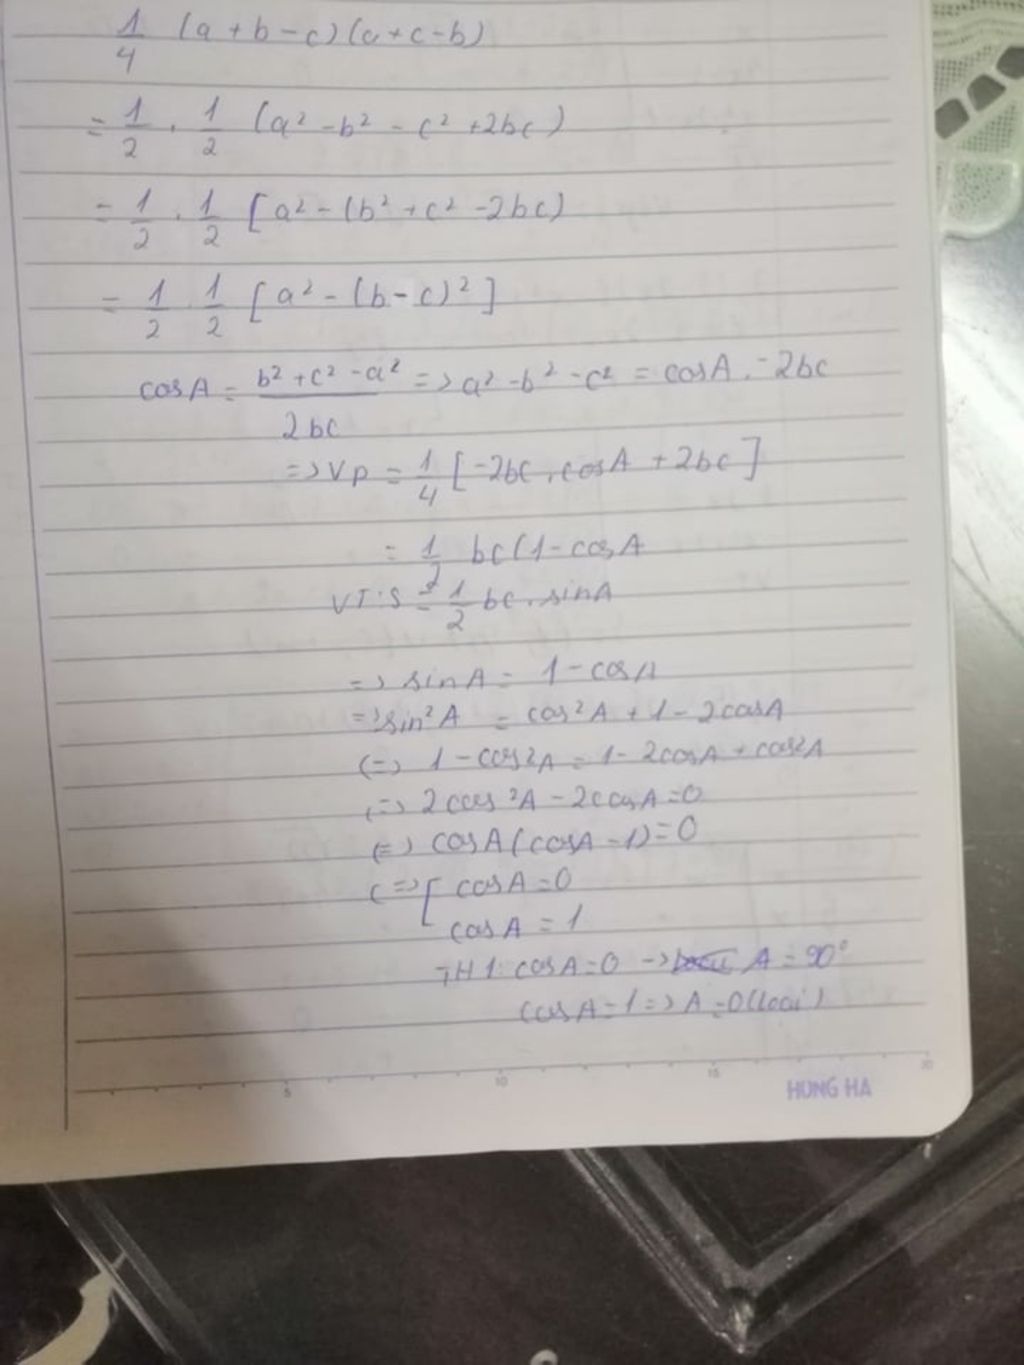 1/4 (a+b-c)(a+c-b)
= 1/2 . 1/2 (a² - b² - c² + 2bc)
= 1/2 . 1/2 [a² - (b² + c² - 2bc)
= 1/2 . 1/2 [a² - (b - c)²]
cosA = (b² + c² - a²)/2bc => a² - b² - c² = cosA . -2bc
=> VP = 1/4 [-2bc . cosA + 2bc]
= 1/2 bc(1 - cosA
VT: S = 1/2 bc . sinA
=> sinA = 1 - cosA
=> sin²A = cos²A + 1 - 2cosA
<=> 1 - cos²A = 1 - 2cosA + cos²A
<=> 2cos²A - 2cosA = 0
<=> cosA(cosA - 1) = 0
<=> [ cosA = 0
cosA = 1
TH1: cosA = 0 -> A = 90°
cosA = 1 => A = 0 (loại)
5 10 15 20
HUNG HA